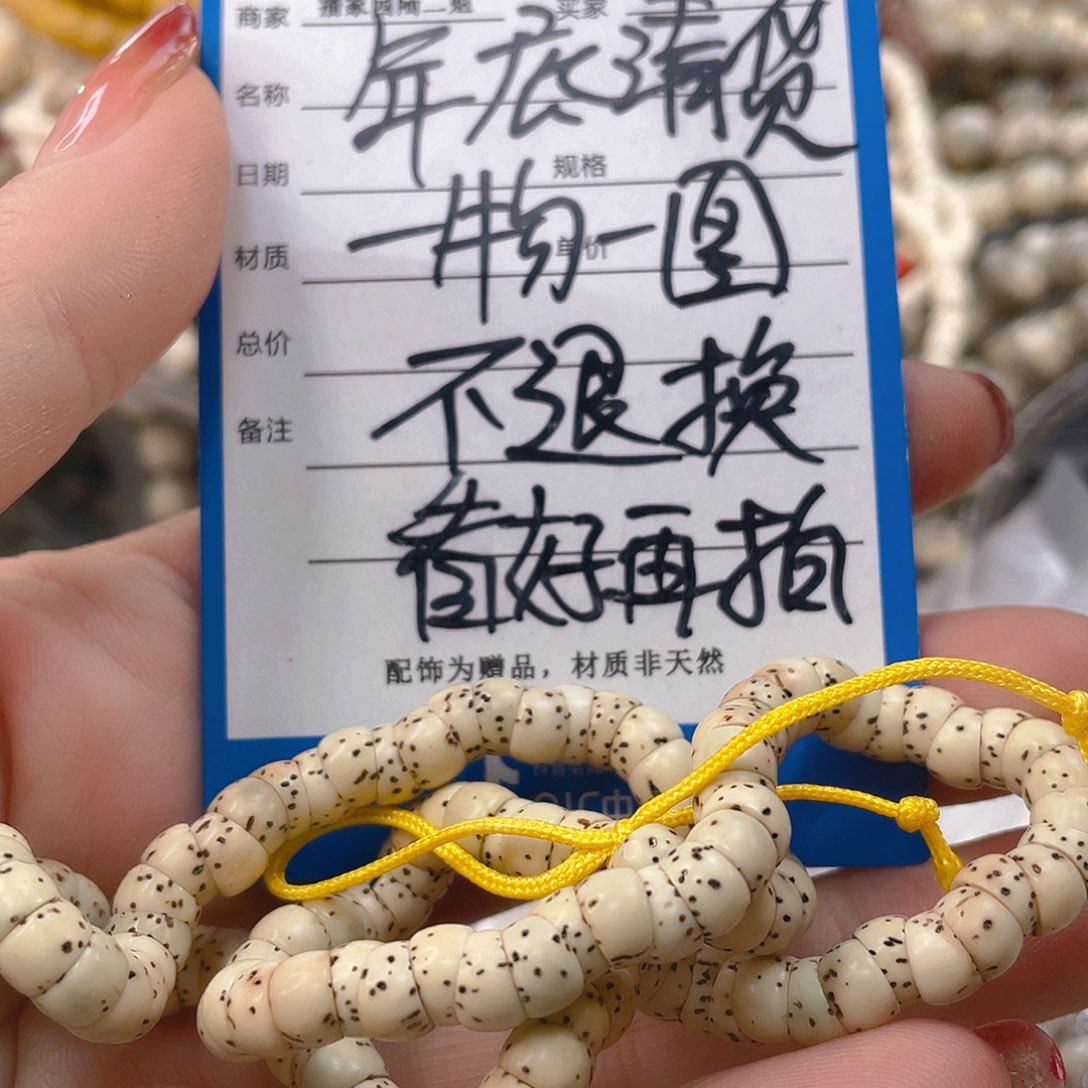 商家 潘家园陆二姐 买家
名称 年底清货
日期 规格
材质 一物一图 单价
总价 不退换
备注
看好再拍
配饰为赠品，材质非天然